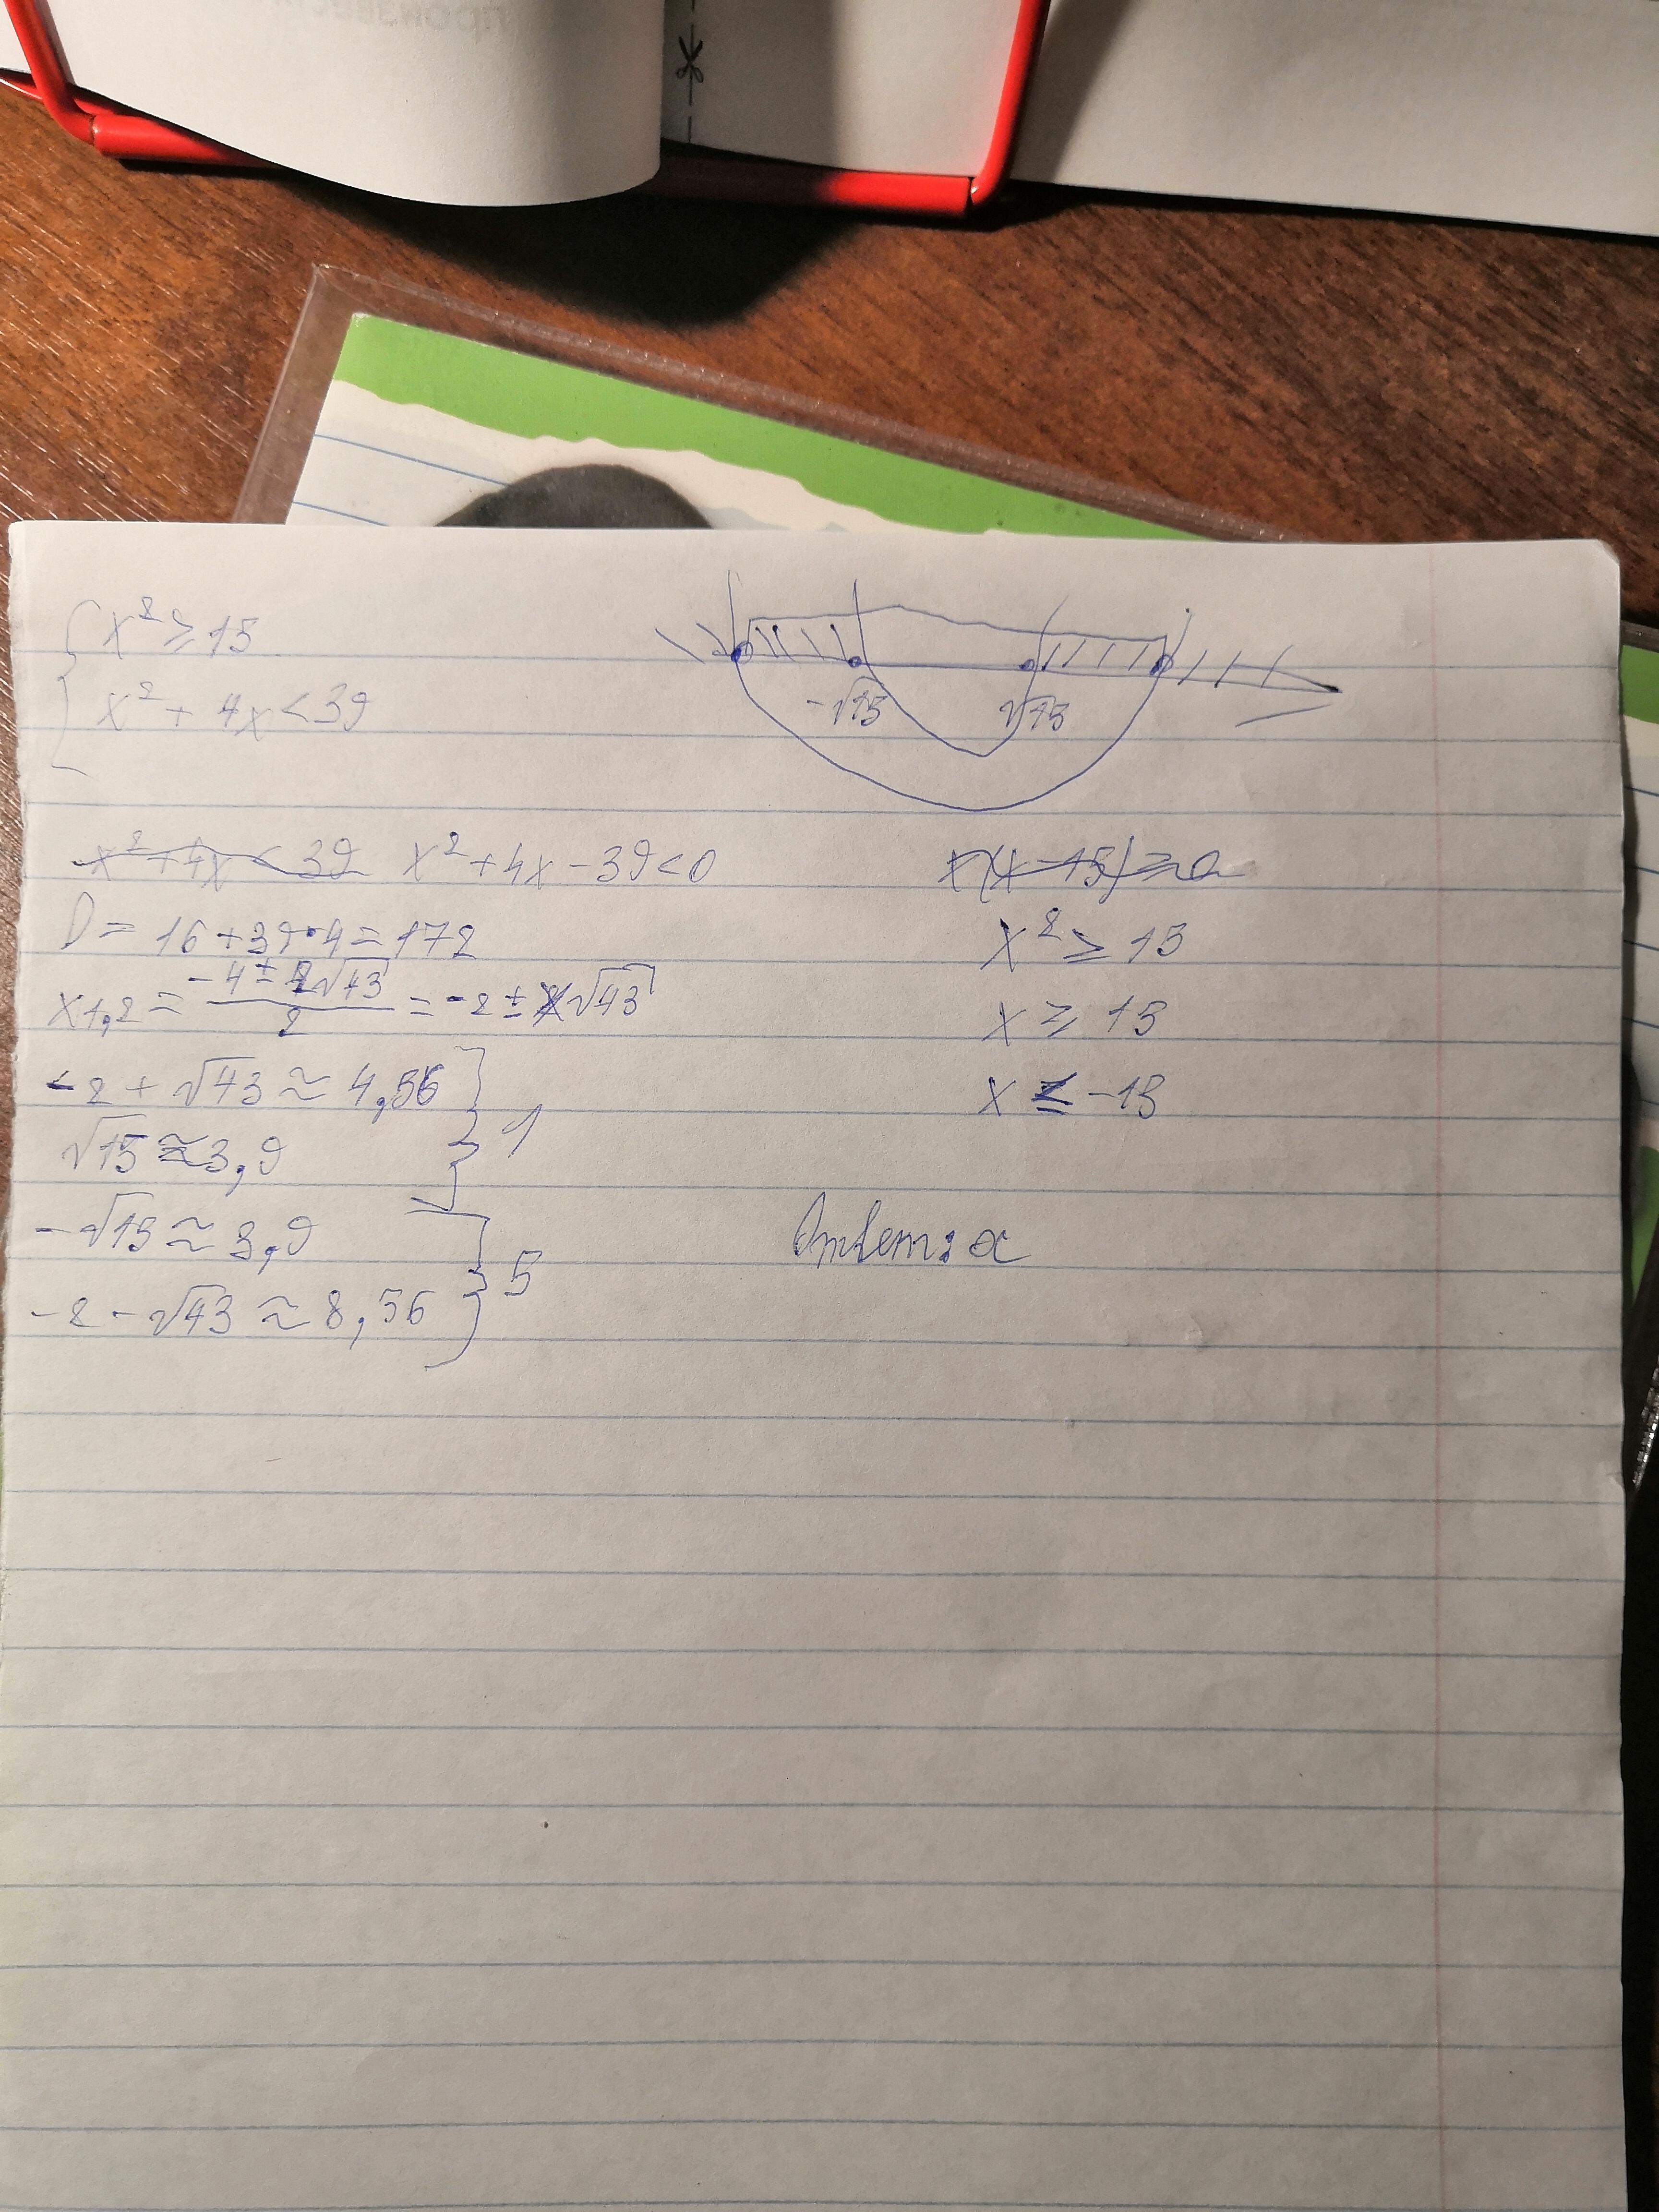 x² ≥ 15
x² + 4x < 39
-√15 √15
x² + 4x < 39 x² + 4x - 39 < 0
x(x-15) ≥ 0
D = 16 + 39·4 = 172
x² ≥ 15
x1,2 = (-4 ± 2√43)/2 = -2 ± √43
x ≥ 15
-2 + √43 ≈ 4,56
x ≤ -15
1
√15 ≈ 3,9
-√15 ≈ 3,9
Ответ: a
5
-2 - √43 ≈ 8,56